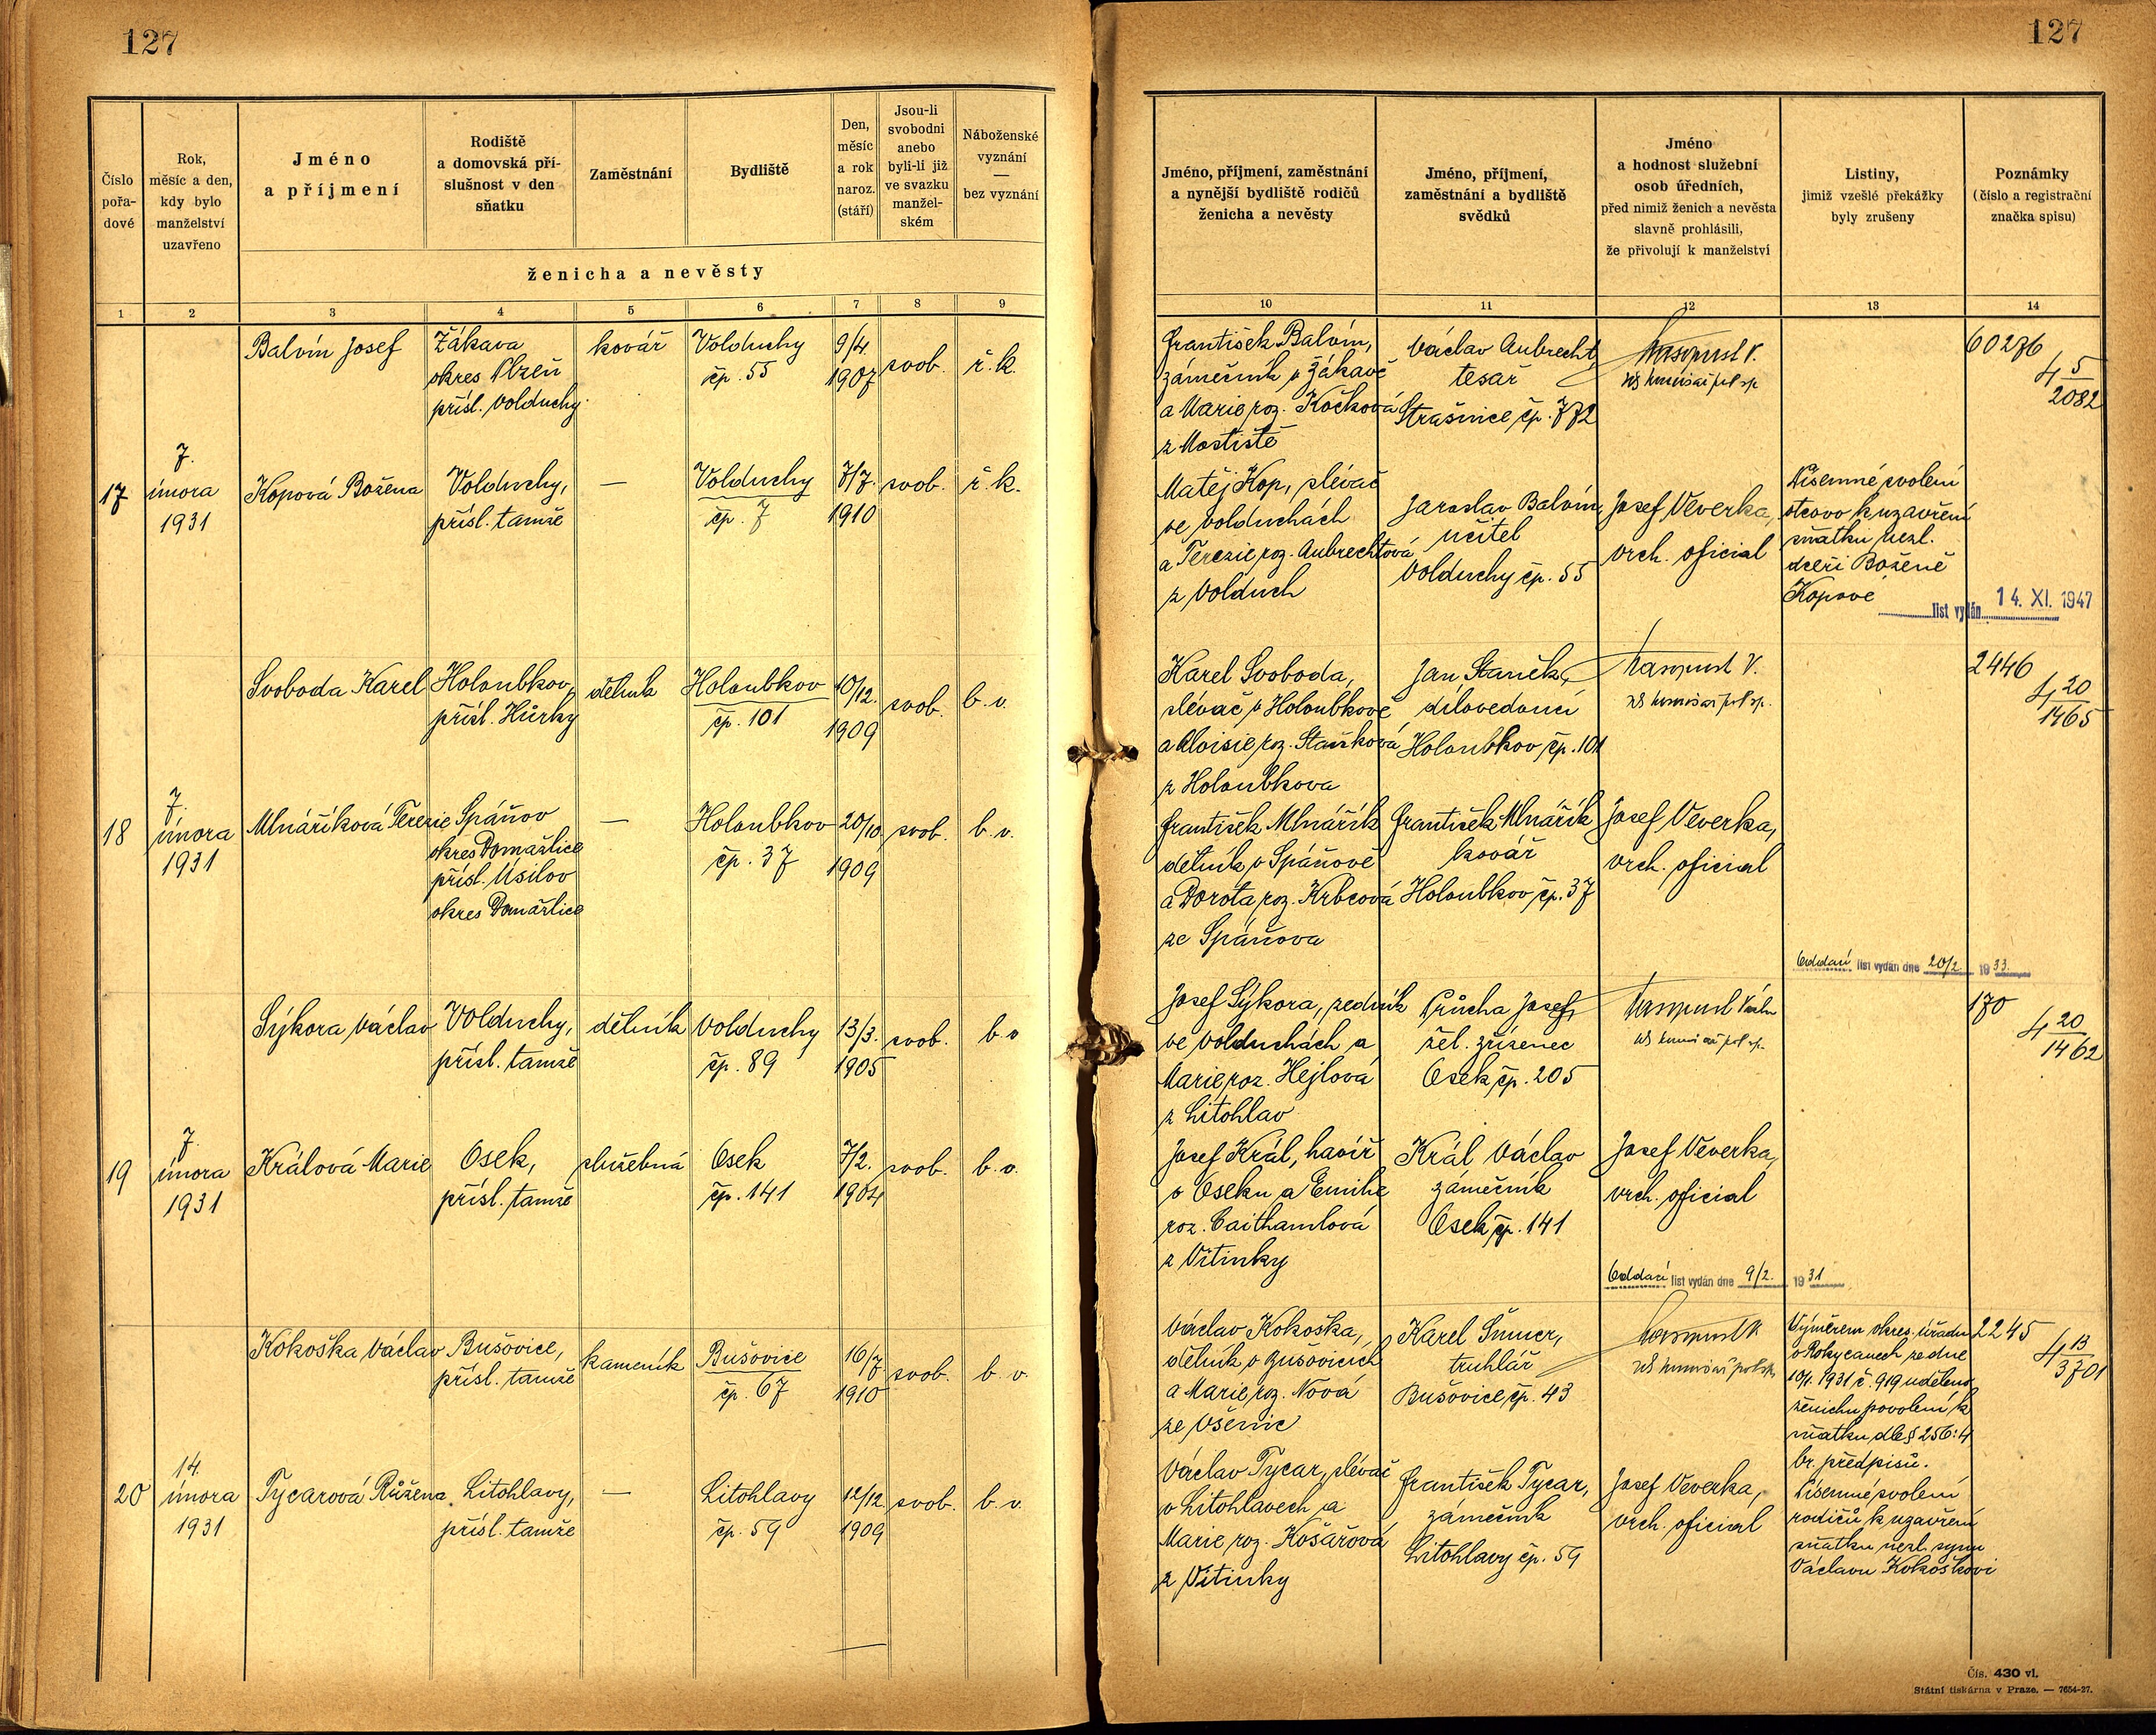 127
127
Číslo pořa-dové
Rok, měsíc a den, kdy bylo manželství uzavřeno
Jméno a příjmení
Rodiště a domovská pří-slušnost v den sňatku
Zaměstnání
Bydliště
Den, měsíc a rok naroz. (stáří)
Jsou-li svobodni anebo byli-li již ve svazku manžel-ském
Náboženské vyznání — bez vyznání
ženicha a nevěsty
1 2 3 4 5 6 7 8 9
Jméno, příjmení, zaměstnání a nynější bydliště rodičů ženicha a nevěsty
Jméno, příjmení, zaměstnání a bydliště svědků
Jméno a hodnost služební osob úředních, před nimiž ženich a nevěsta slavně prohlásili, že přivolují k manželství
Listiny, jimiž vzešlé překážky byly zrušeny
Poznámky (číslo a registrační značka spisu)
10 11 12 13 14
Balvín Josef
Žákava
okres Plzeň
přísl. Volduchy
kovář
Volduchy
čp. 55
9/4.
1907
svob.
ř. k.
František Balvín,
zámečník v Žákavě
a Marie roz. Kočková
z Mostiště
Václav Aubrecht
tesař
Strašnice čp. 772
60276
4 5/2082
17
7.
února
1931
Kopová Božena
Volduchy,
přísl. tamže
—
Volduchy
čp. 7
7/7.
1910
svob.
ř. k.
Matěj Kop, slévač
ve Volduchách
a Terezie roz. Aubrechtová
z Volduch
Jaroslav Balvín,
učitel
Volduchy čp. 55
Josef Veverka,
vrch. oficial
Písemné svolení
otcovo k uzavření
sňatku nezl.
dceři Boženě
Kopové
list vydán 14. XI. 1947
Svoboda Karel
Holoubkov,
přísl. Hůrky
dělník
Holoubkov
čp. 101
10/12.
1909
svob.
b. v.
Karel Svoboda,
slévač v Holoubkově
a Aloisie roz. Staňková
z Holoubkova
Jan Staněk,
dílovedoucí
Holoubkov čp. 101
2446
4 20/1465
18
7.
února
1931
Mlnáříková Terezie
Spáňov
okres Domažlice
přísl. Úsilov
okres Domažlice
—
Holoubkov
čp. 37
20/10.
1909
svob.
b. v.
František Mlnářík
dělník v Spáňově
a Dorota roz. Krbcová
ze Spáňova
František Mlnářík
kovář
Holoubkov čp. 37
Josef Veverka,
vrch. oficial
Oddací list vydán dne 20/2. 1933.
Sýkora Václav
Volduchy,
přísl. tamže
dělník
Volduchy
čp. 89
13/3.
1905
svob.
b. v
Josef Sýkora, zedník
ve Volduchách a
Marie roz. Hejlová
z Litohlav
Průcha Josef,
žel. zřízenec
Osek čp. 205
170
4 20/1462
19
7.
února
1931
Králová Marie
Osek,
přísl. tamže
služebná
Osek
čp. 141
7/2.
1904
svob.
b. v.
Josef Král, havíř
v Oseku a Emilie
roz. Caithamlová
z Vitinky
Král Václav
zámečník
Osek čp. 141
Josef Veverka,
vrch. oficial
Oddací list vydán dne 9/2. 1931
Kokoška Václav
Bušovice,
přísl. tamže
kameník
Bušovice
čp. 67
16/7.
1910
svob.
b. v.
Václav Kokoška,
dělník v Bušovicích
a Marie roz. Nová
ze Všenic
Karel
truhlář
Bušovice čp. 43
Výměrem okres. úřadu
v Rokycanech ze dne
10/1. 1931 č. 919 uděleno
ženichu povolení k
sňatku dle § 256:4
br. předpisů.
2245
4 13/3701
20
14.
února
1931
Tycarová Růžena
Litohlavy,
přísl. tamže
—
Litohlavy
čp. 59
12/12.
1909
svob.
b. v.
Václav Tycar, slévač
v Litohlavech a
Marie roz. Košařová
z Vitinky
František Tycar,
zámečník
Litohlavy čp. 59
Josef Veverka,
vrch. oficial
Písemné svolení
rodičů k uzavření
sňatku nezl. synu
Václavu Kokoškovi
Čís. 430 vl.
Státní tiskárna v Praze. — 7654-27.